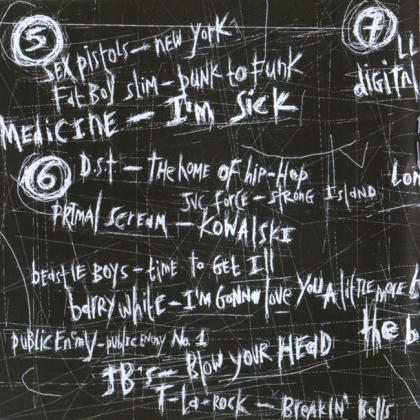 5
SEX PISTOLS - NEW YORK
FATBOY SLIM - PUNK TO FUNK
MEDICINE - I'M SICK
6
D.ST - THE HOME OF HIP-HOP
JVC FORCE - STRONG ISLAND
PRIMAL SCREAM - KOWALSKI
BEASTIE BOYS - TIME TO GET ILL
BARRY WHITE - I'M GONNA LOVE YOU A LITTLE MORE
PUBLIC ENEMY - PUBLIC ENEMY NO. 1
JB's - BLOW YOUR HEAD
T-LA-ROCK - BREAKIN' BELLS
7
LI
DIGITAL
LON
THE B